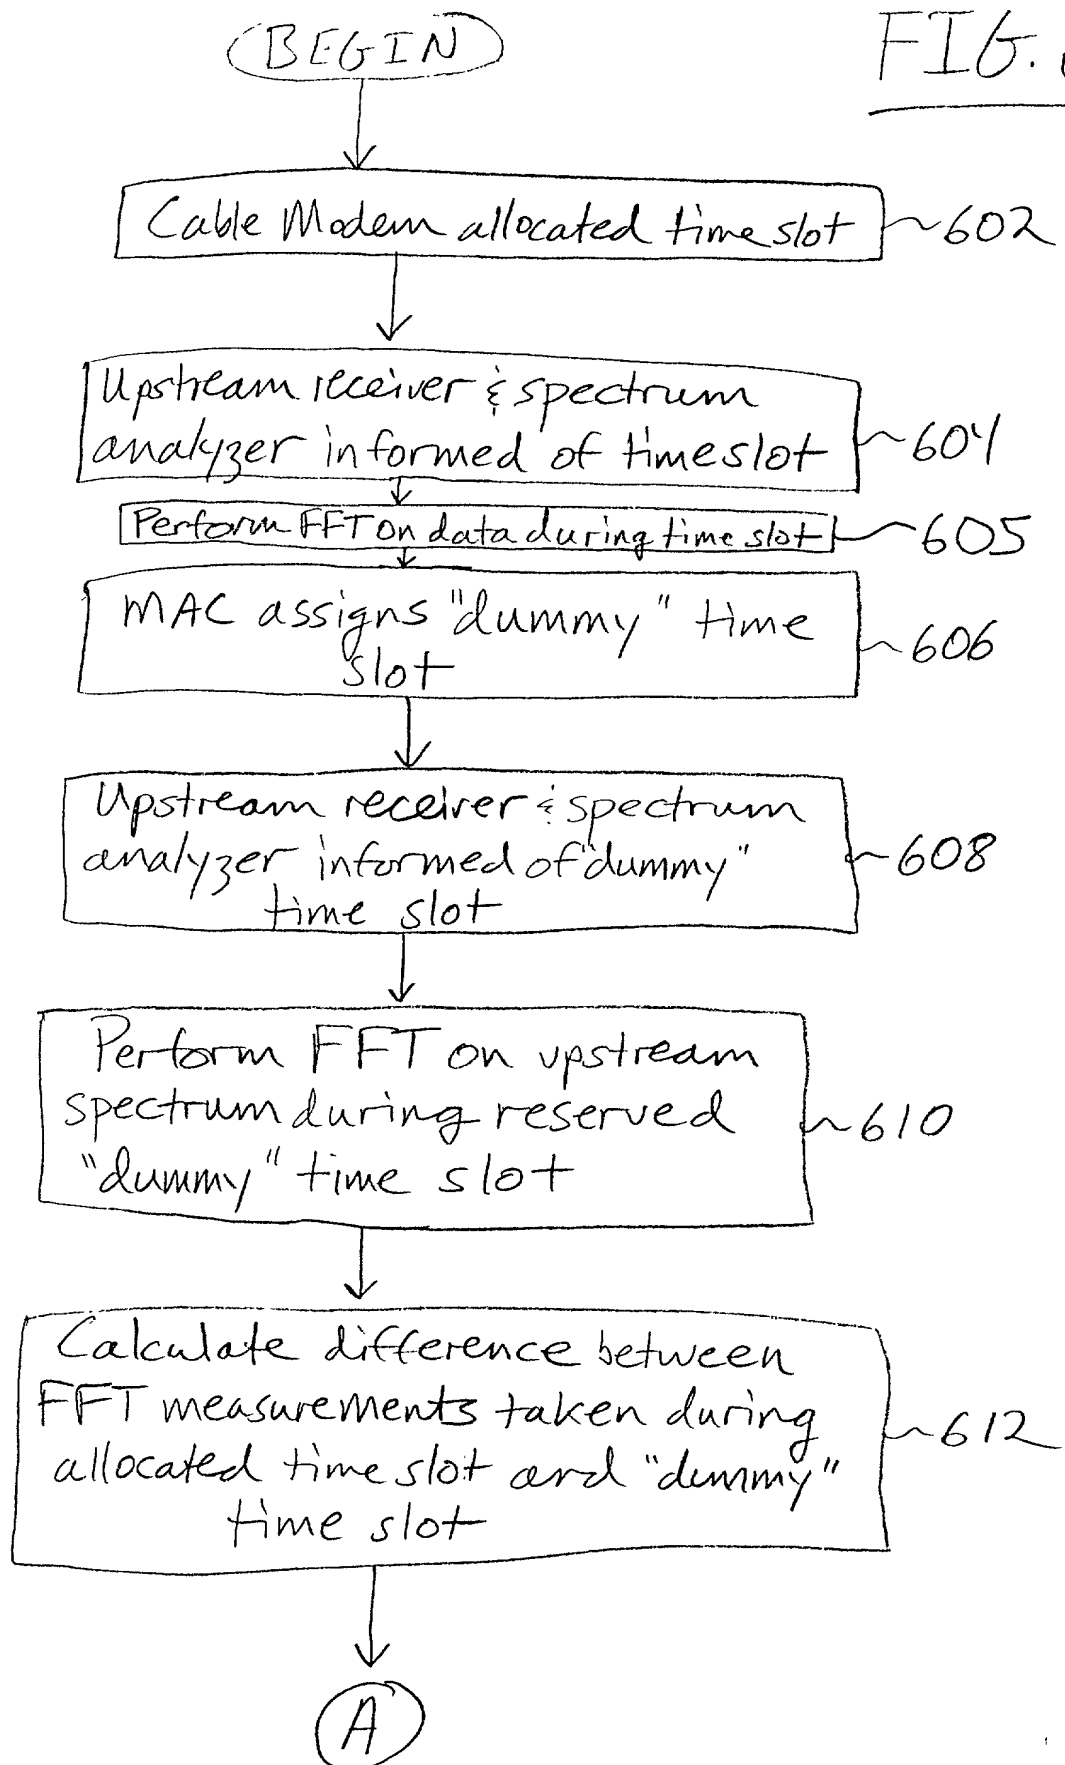 BEGIN
FIG.
Cable Modem allocated time slot
602
Upstream receiver & spectrum
analyzer informed of timeslot
604
Perform FFT on data during time slot
605
MAC assigns "dummy" time
slot
606
Upstream receiver & spectrum
analyzer informed of "dummy"
time slot
608
Perform FFT on upstream
spectrum during reserved
"dummy" time slot
610
Calculate difference between
FFT measurements taken during
allocated time slot and "dummy"
time slot
612
A